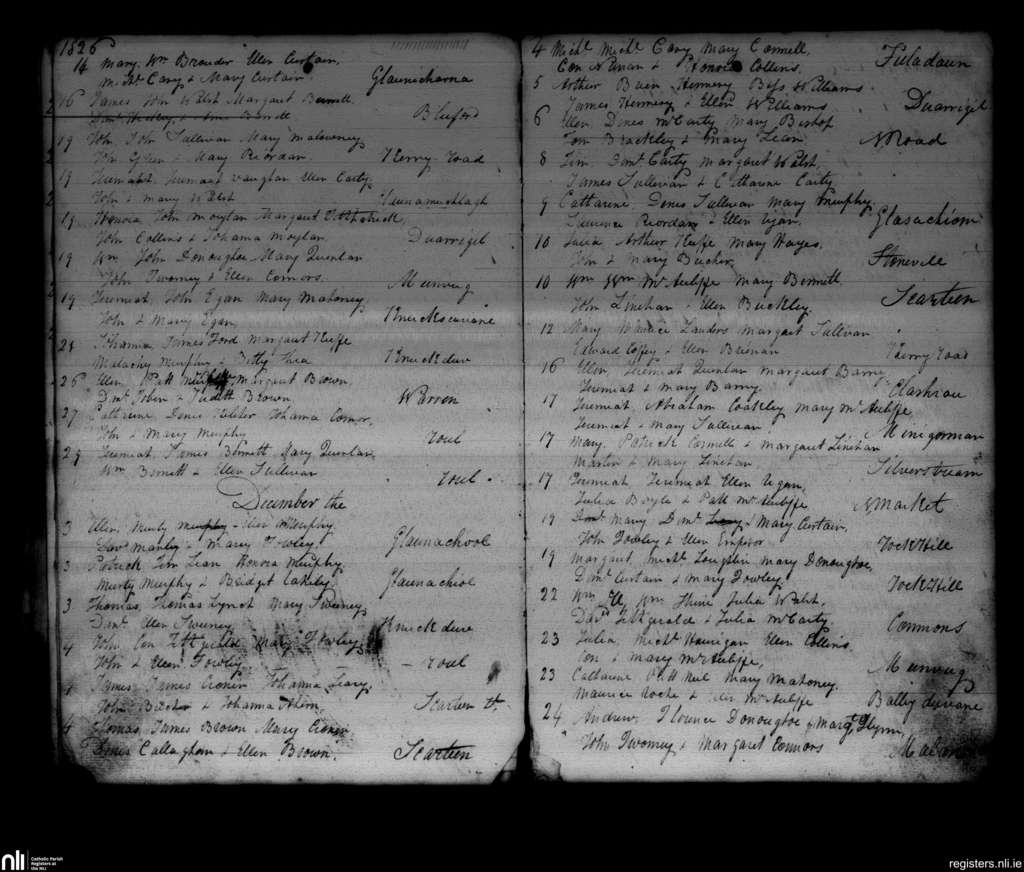 1826
14 Mary, Wm Brouder Ellen Curtain,
Michl. Cary & Mary Curtain Glaunicharna
16 James Wm Walsh Margaret Barrett
Blueford
19 John John Sullivan Mary Maloweney
& Mary Riordan. Kerry road
19 Jeremiah, Jeremiah Vaughan Ellen Carty,
John & Mary Walsh
19 Honora John Moylan Margaret Fitzpatrick
John Collins & Johanna Moylan Duarrigil
19 Wm John Donoughoe Mary Quinlan
John Twomey & Ellen Connors. Munvug
19 Jeremiah, John Egan Mary Mahoney,
John & Mary Egan,
21 Johanna James Ford Margaret Keeffe
Murphy & Betty Shea Knuckduv
26 Ellen, Patt Margaret Brown,
Danl. Tobin & Judith Brown Warren
27 Catharine, Denis Kelleher Johanna Connor,
John & Mary Murphy roul
29 Jeremiah, James Barrett Mary Quinlan,
Wm Barrett & Ellen Sullivan roul
December the
3 Ellen, Murty Murphy,
& Mary Fowley. Glaunachool
3 Patrick Tim Lean Honora Murphy,
Murty Murphy & Bridget Eakeley. Glaunachiol
3 Thomas, Thomas Lynch Mary Sweeney,
Danl. Ellen Sweeney Knuckduve
4 John, Con Fitzgerald Mary Fowley,
John & Ellen Fowley – roul
4 James James Cronin Johanna Leary,
John & Johanna Scarteen th.
4 Thomas, James Brown Mary Cronin
Callaghan & Ellen Brown. Scarteen
4 Michl. Michl. Cary Mary Connell,
Con & Honora Collins. Fuladaun
5 Arthur Bain Hennery Bess Williams
James Hennery & Ellen Williams Duarrigil
6 Ellen, Denis McCarty Mary Bishop
Tom Brackley & Mary Lean NRoad
8 Tim Danl. Carty Margaret Walsh,
James Sullivan & Catharine Carty
9 Catharine, Denis Sullivan Mary Murphy,
Laurence Riordan & Ellen Egan. Glasachiom
10 Julia Arthur Keeffe Mary Hayes,
John & Mary Beecher, Stoneville
10 Wm Wm McAuliffe Mary Barrett
John Linehan Ellen Buckley Scarteen
12 Mary Maurice Landers Margaret Sullivan
Edward Coffey & Ellen Brenan Kerry road
16 Ellen, Jeremiah Quinlan Margaret Barry,
Jeremiah & Mary Barry. Clashrau
17 Jeremiah, Abraham Coakley, Mary McAuliffe,
Jeremiah & Mary Sullivan. Minigorman
17 Mary, Patrick Connell & Margaret Linehan
Martin & Mary Linehan Silverstream
17 Jeremiah Jeremiah Ellen Egan,
Julia Boyle & Patt McAuliffe NMarket
19 Mary Danl. & Mary Curtain,
John Fowley & Ellen Emperor RockHill
19 Margaret, Michl. Loughlin Mary Donoughoe,
Danl. Curtain & Mary Fowley. RockHill
22 Wm Wm Shine Julia Walsh,
Fitzgerald & Julia McCarty. Commons
23 Julia, Michl. Hannigan Ellen Collins
Con & Mary McAuliffe, Munvug
23 Catharine Patt Neil Mary Mahoney.
Maurice Roche & McAuliffe Ballyduvane
24 Andrew, Florence Donoughoe & Margt. Flynn,
John Twomey & Margaret Connors
nli Catholic Parish
Registers at
the NLI
registers.nli.ie